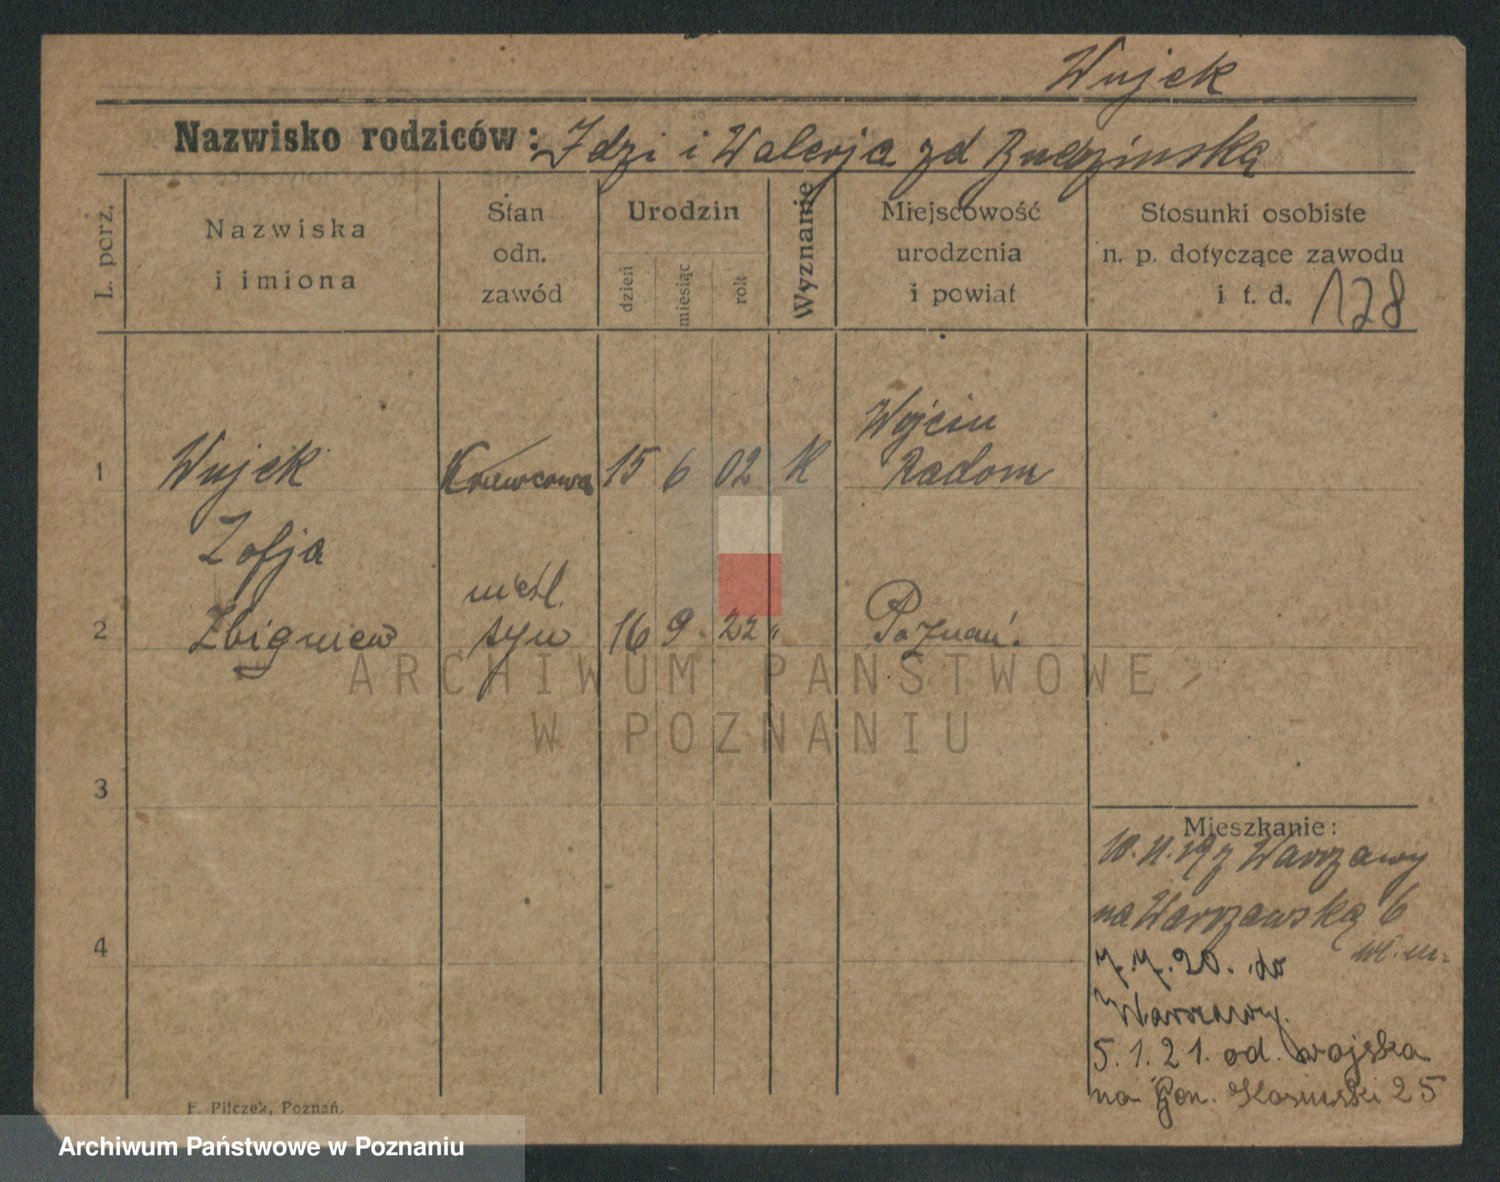 Wujek
Nazwisko rodziców: Idzi i Walerja zd Budzińska
L. porz.
Nazwiska
i imiona
Stan
odn.
zawód
Urodzin
dzień
miesiąc
rok
Wyznanie
Miejscowość
urodzenia
i powiat
Stosunki osobiste
n. p. dotyczące zawodu
i t. d. 128
1 Wujek Krawcowa 15 6 02 K Wójcin
Radom
Zofja
nieśl.
2 Zbigniew syn 16 9. 22 " Poznań.
3
4
Mieszkanie:
10.II.19 z Warszawy
na Warszawską 6
7.7.20. do
Warszawy.
5.1.21. od. wojska
na Gen. Kosinski 25
F. Pilczek, Poznań.
ARCHIWUM PAŃSTWOWE
W POZNANIU
Archiwum Państwowe w Poznaniu